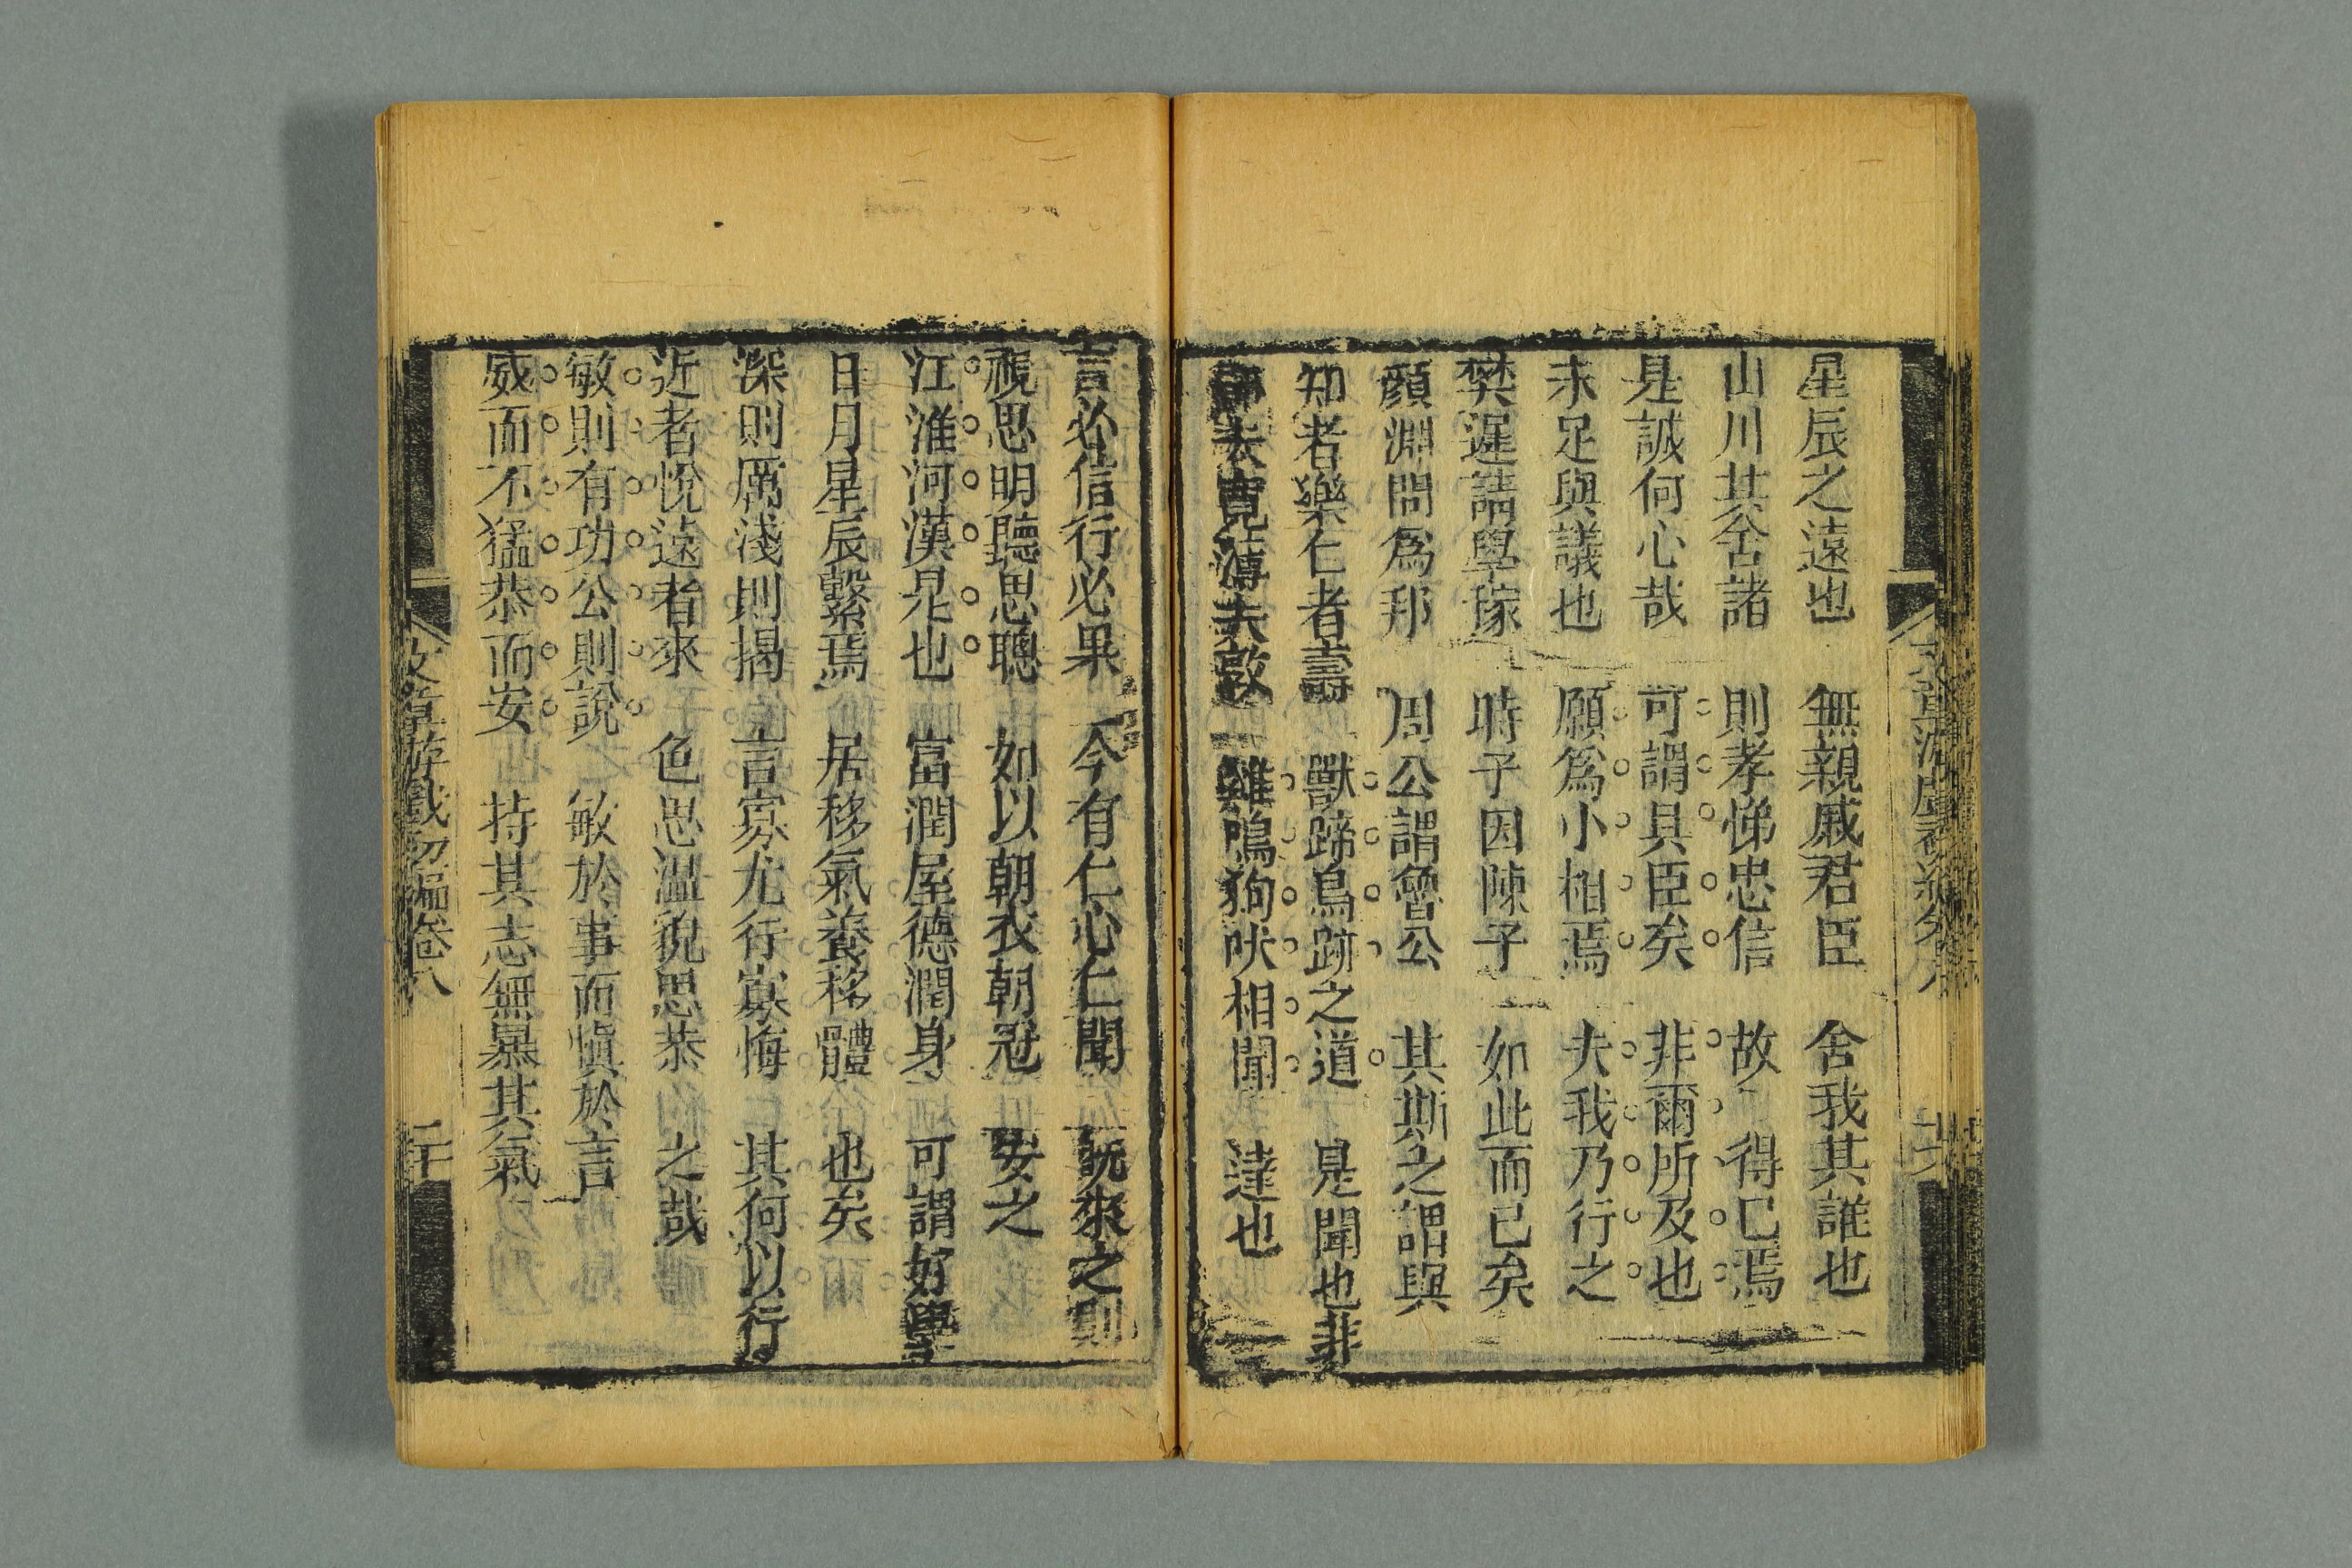 星辰之遠也　無親戚君臣　舍我其誰也
山川其舍諸　則孝悌忠信　故　得已焉
是誠何心哉　可謂具臣矣　非爾所及也
未足與議也　願爲小相焉　夫我乃行之
樊遲請學稼　時子因陳子　如此而已矣
顏淵問爲邦　周公謂魯公　其斯之謂與
知者樂仁者壽　獸蹄鳥跡之道　是聞也非
鄙夫寬薄夫敦　雞鳴狗吠相聞　達也
言必信行必果　今有仁心仁聞　既來之則
視思明聽思聰　如以朝衣朝冠　安之
江淮河漢是也　富潤屋德潤身　可謂好學
日月星辰繫焉　居移氣養移體　也矣
深則厲淺則揭　言寡尤行寡悔　其何以行
近者悅遠者來　色思溫貌思恭　之哉
敏則有功公則說　敏於事而愼於言
威而不猛恭而安　持其志無暴其氣
文章游戲初編卷八　二十